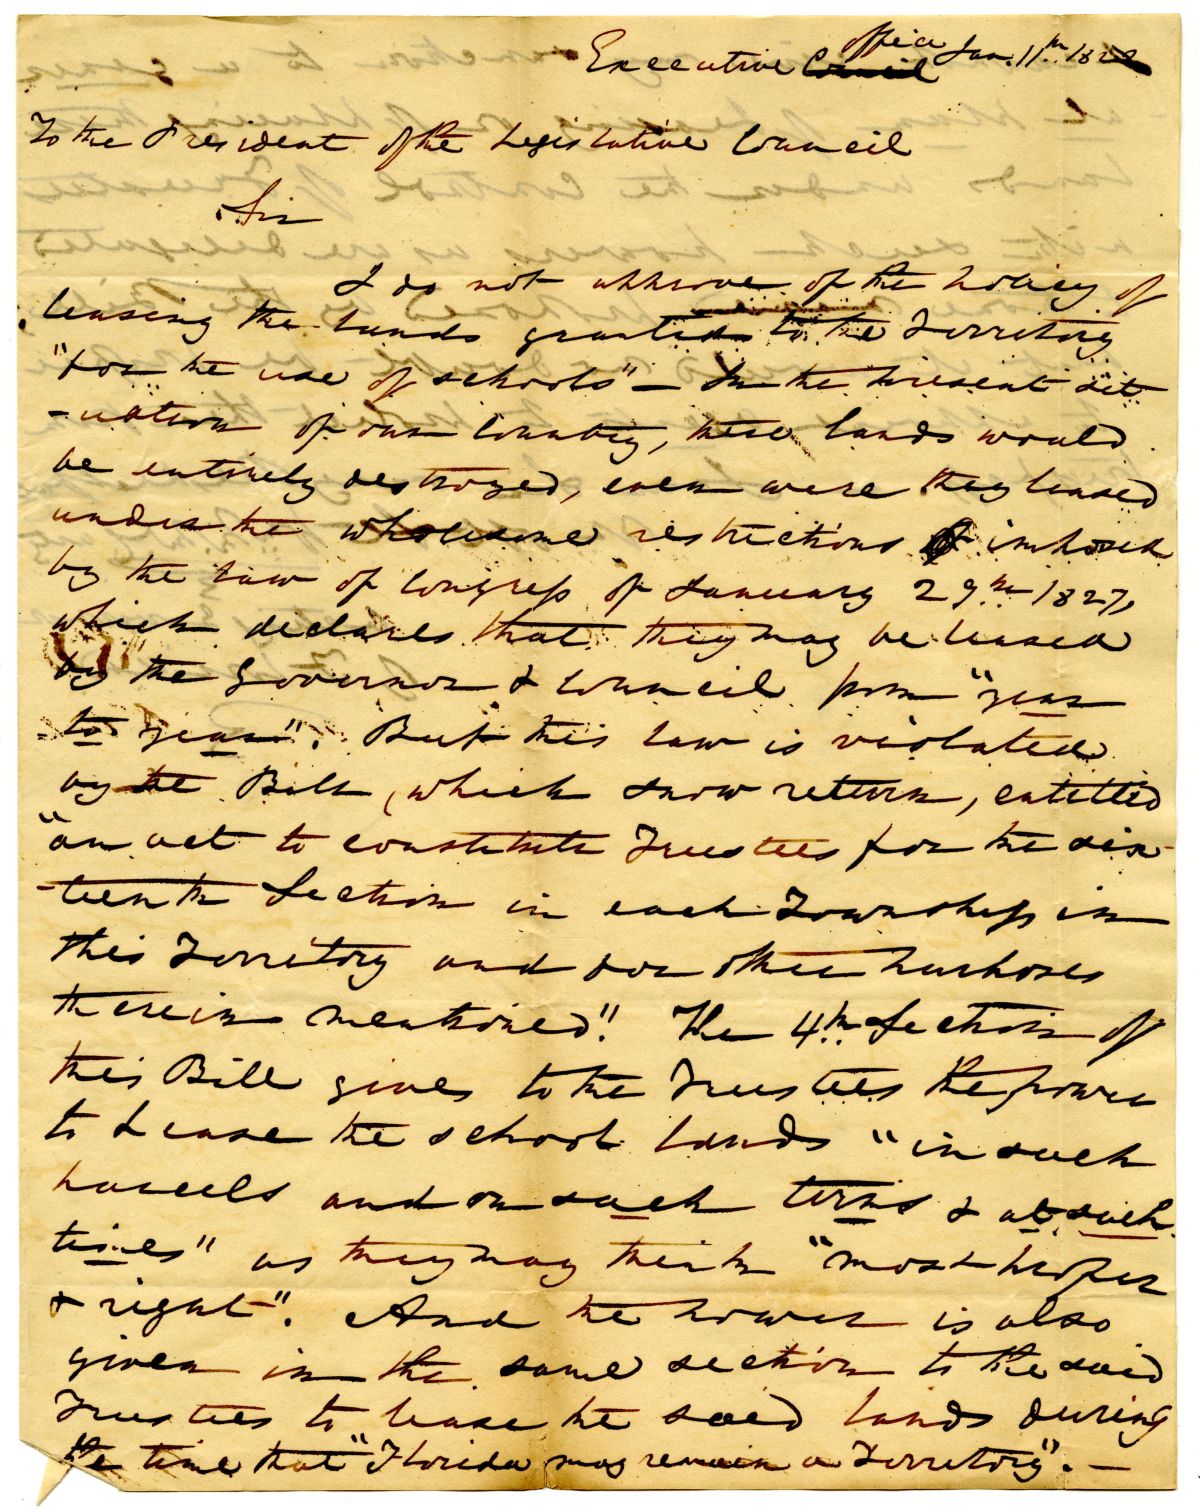 Executive office Jan. 11th 1828
To the President of the Legislative Council
Sir
I do not approve of the policy of
leasing the lands granted to the Territory
"for the use of schools" — In the present sit
-uation of our Country, these lands would
be entirely destroyed, even were they leased
under the wholesome restrictions imposed
by the law of Congress of January 29th 1827,
which declares that they may be leased
by "the Governor & Council from "year
to year". But this law is violated
by the Bill, which I now return, entitled
"an act to constitute Trustees for the six-
-teenth Section in each Township in
this Territory and for other purposes
therein mentioned". The 4th Section of
this Bill gives to the Trustees the power
to Lease the school lands "in such
parcels and on such terms & at such
times" as they may think "most proper
& right". And the power is also
given in the same section to the said
Trustees to lease the said lands during
the time that "Florida may remain a Territory". —